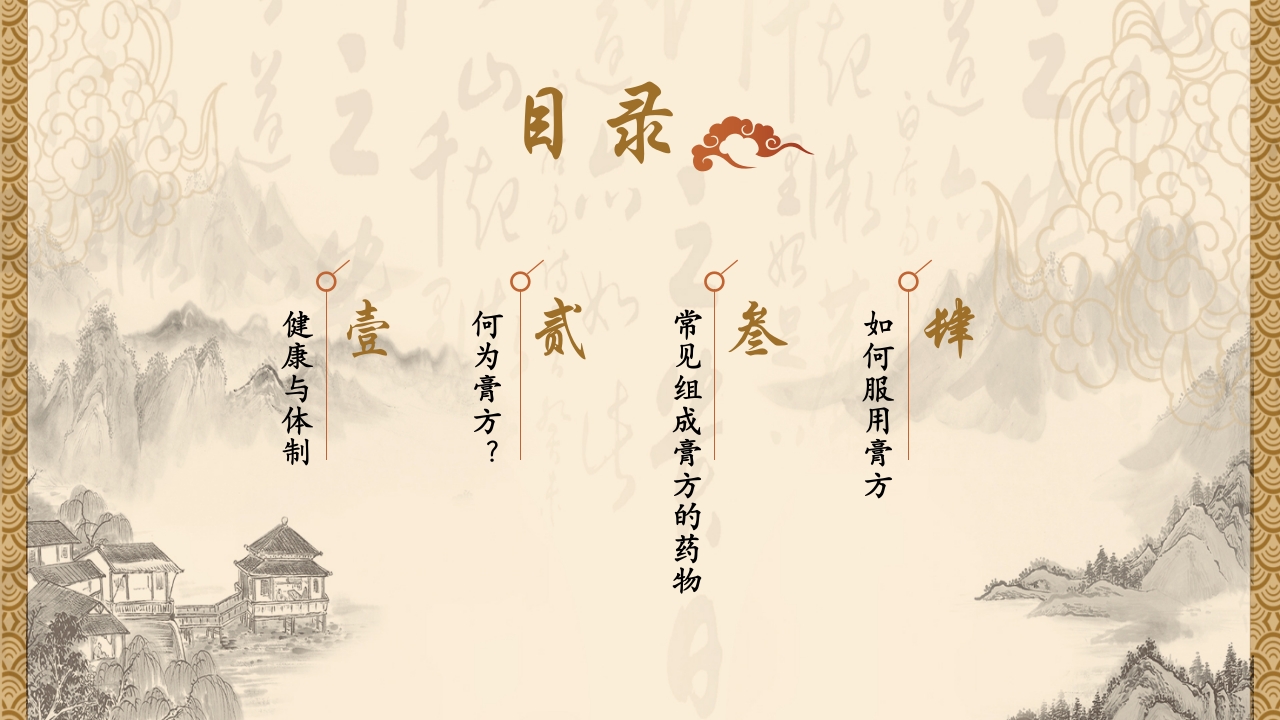 目录
壹
健康与体制
贰
何为膏方？
叁
常见组成膏方的药物
肆
如何服用膏方